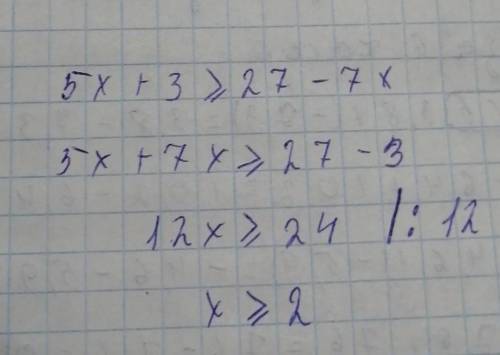 5x + 3 ⩾ 27 - 7x
5x + 7x ⩾ 27 - 3
12x ⩾ 24 /: 12
x ⩾ 2